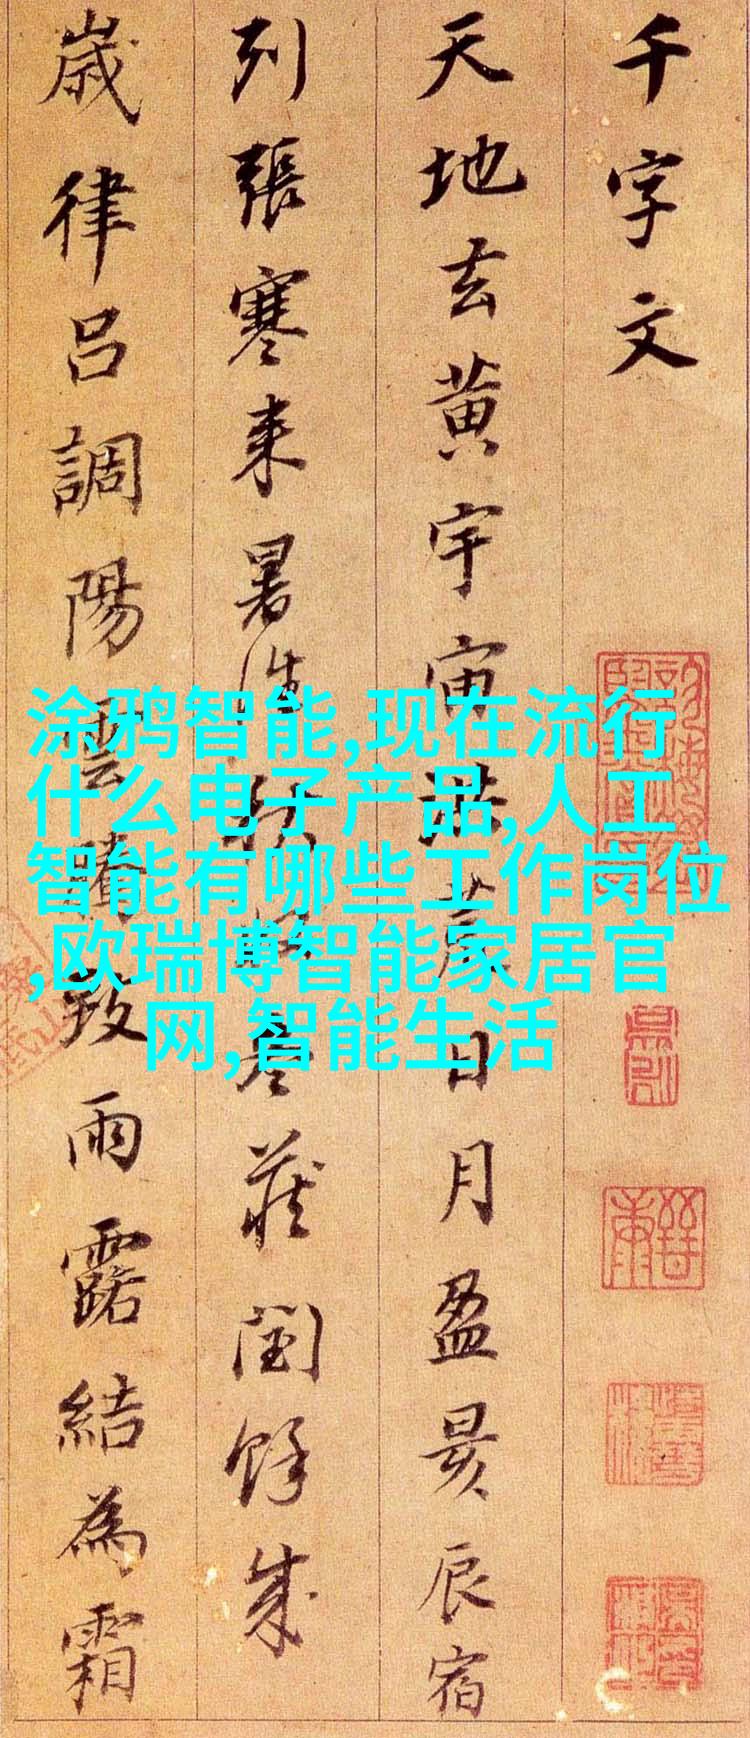 千字文
天地玄黄宇宙洪荒日月盈昃辰宿
列張寒来暑往秋収冬蔵閏餘成
歳律吕調陽雲騰致雨露結為霜
涂鸦智能,现在流行
什么电子产品,人工
智能有哪些工作岗位
,欧瑞博智能家居官
网,智能生活